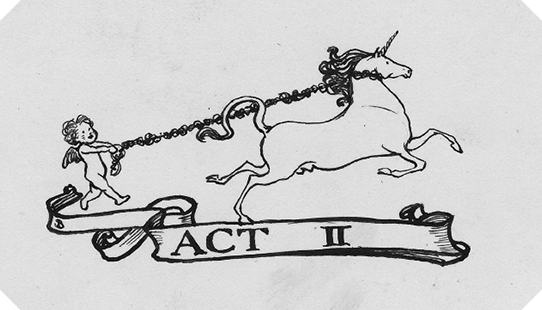 B
ACT II